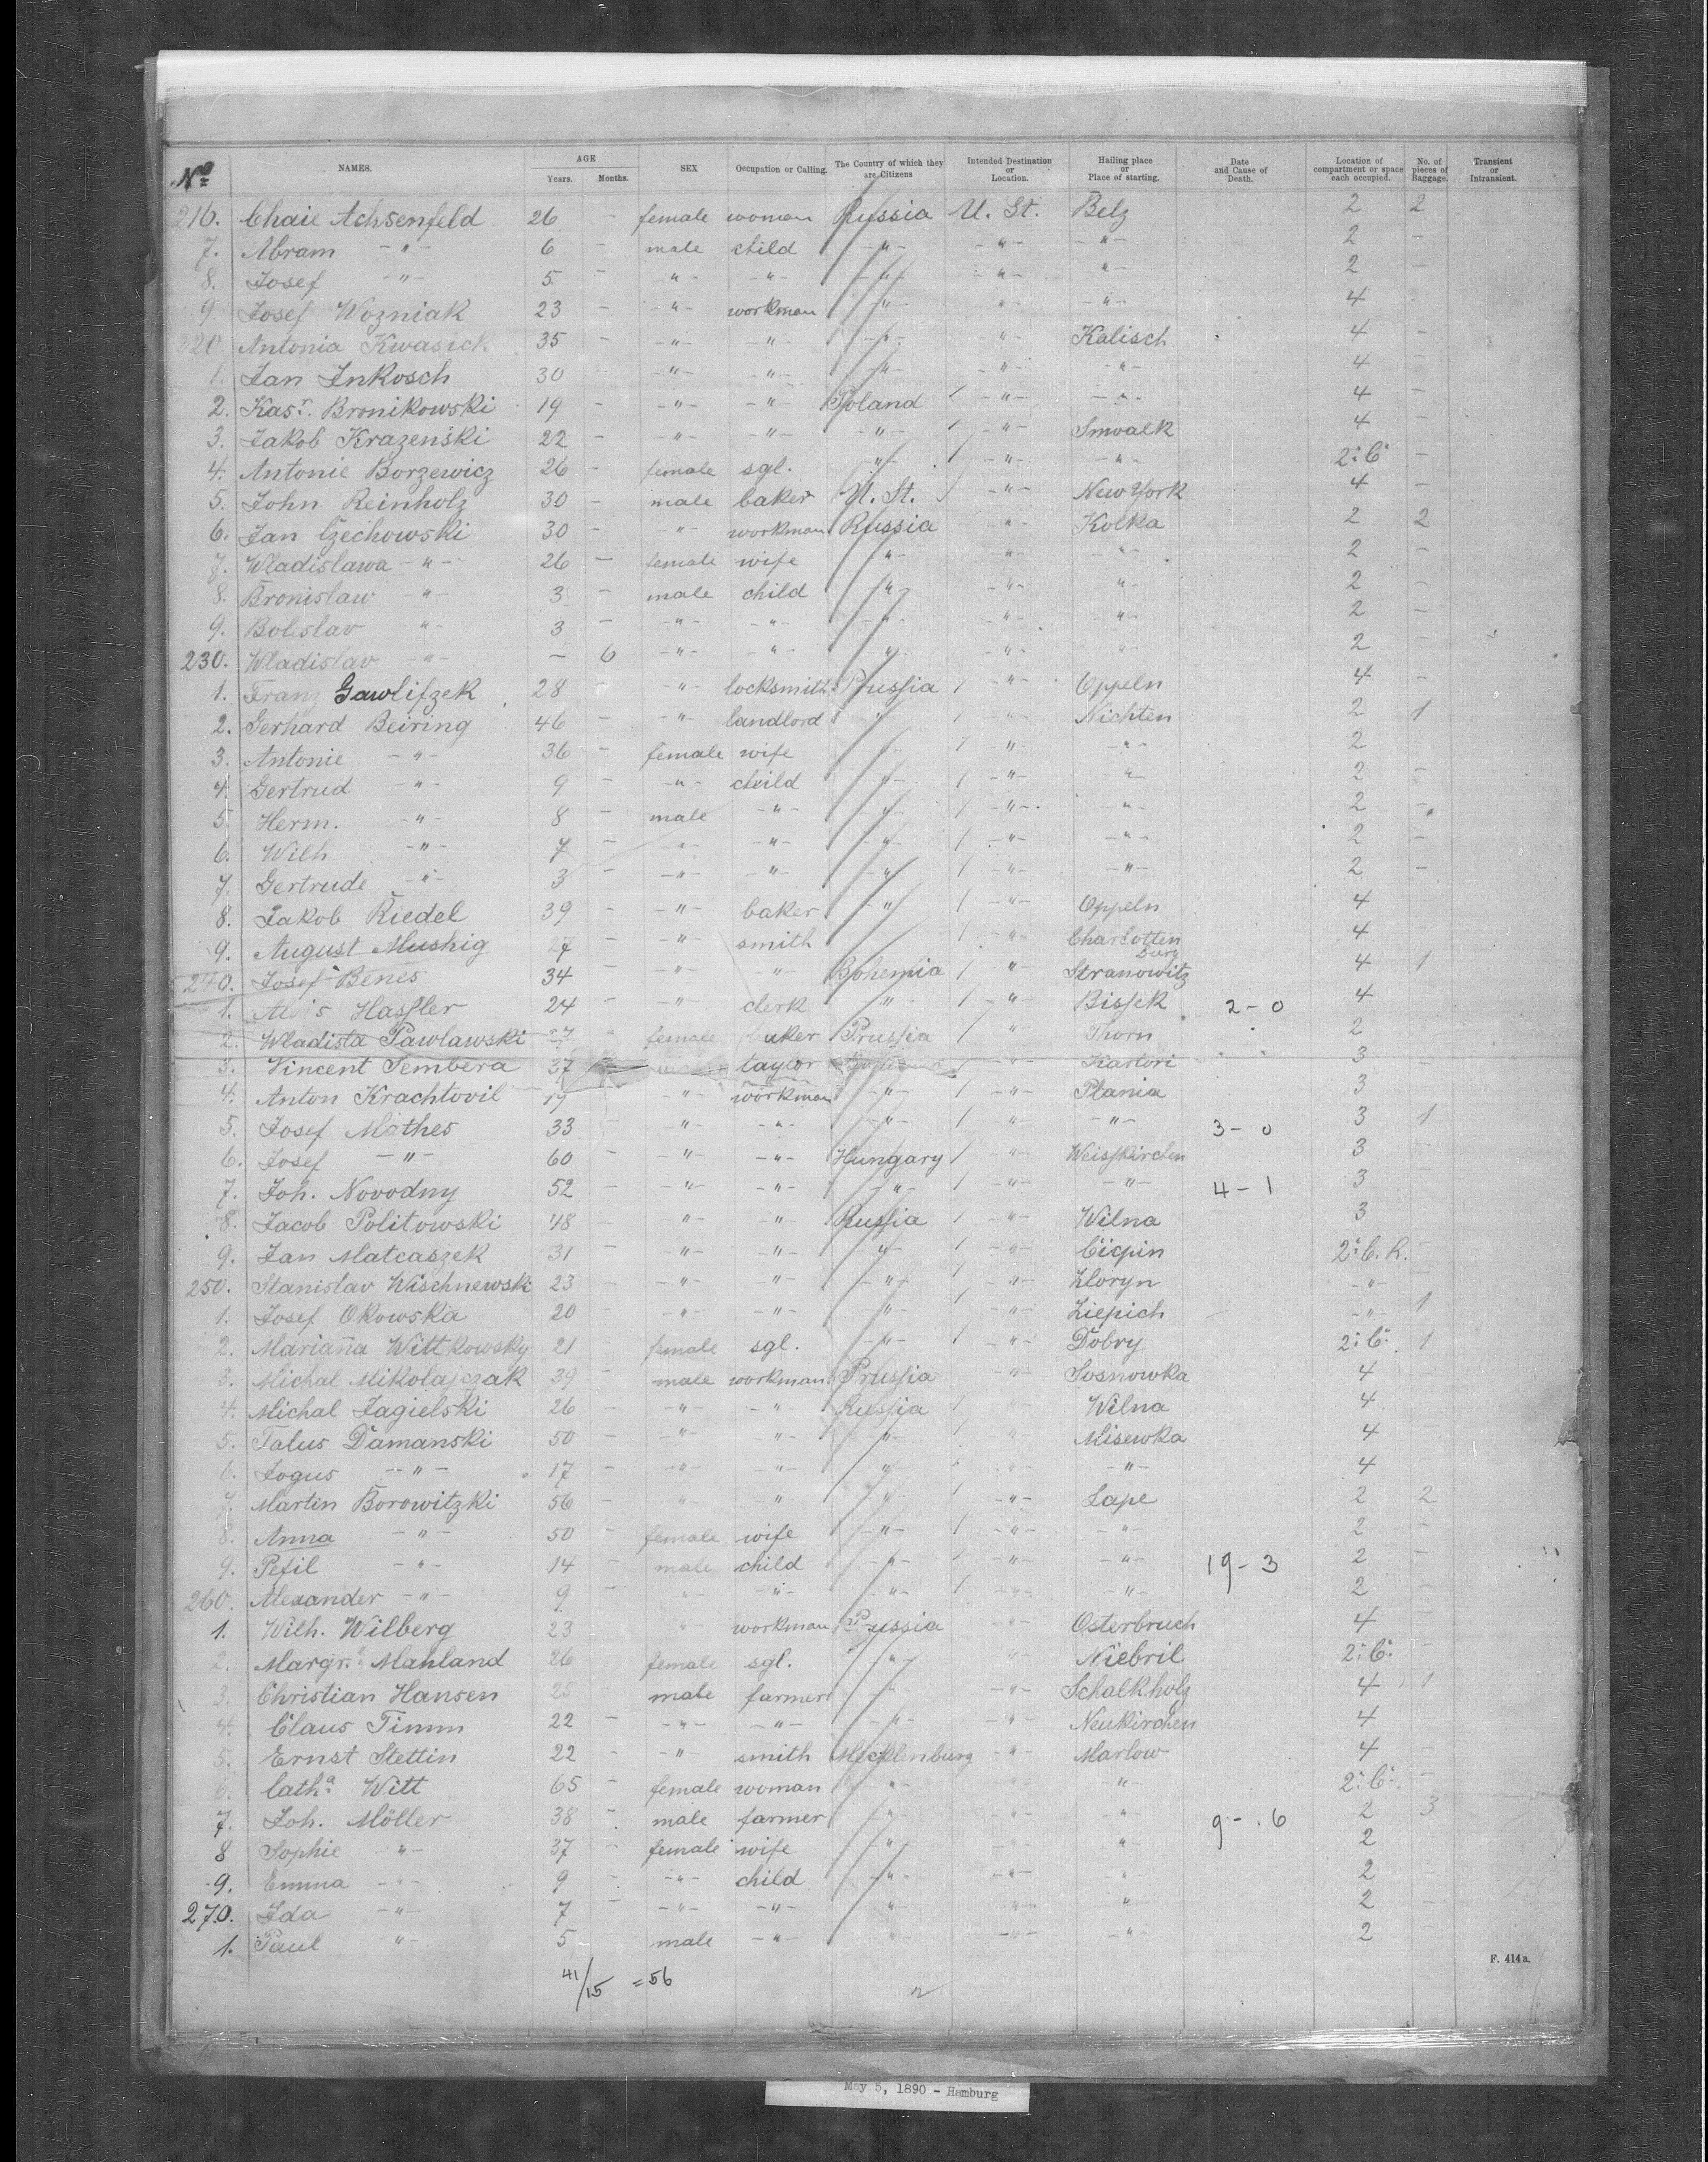 No. NAMES. AGE Years. Months. SEX Occupation or Calling. The Country of which they are Citizens Intended Destination or Location. Hailing place or Place of starting. Date and Cause of Death. Location of compartment or space each occupied. No. of pieces of Baggage. Transient or Intransient.
216. Chaie Achsenfeld 26 - female woman Russia U. St. Belz 2 2
7. Abram -"- 6 - male child -"- -"- -"- 2 -
8. Josef -"- 5 - -"- -"- -"- -"- -"- 2 -
9. Josef Wozniak 23 - -"- workman -"- -"- -"- 4
220. Antonia Kwasick 35 - -"- -"- -"- -"- Kalisch 4 -
1. Jan Inkosch 30 -"- -"- -"- -"- -"- 4 -
2. Kasr. Bronikowski 19 - -"- -"- Poland -"- -"- 4 -
3. Jakob Krazenski 22 - -"- -"- -"- -"- Smwalk 4 -
4. Antonie Borzewicz 26 - female sgl. -"- -"- -"- 2: C: -
5. John Reinholz 30 - male baker U. St. -"- New York 4 -
6. Jan Czechowski 30 - -"- workman Russia -"- Kolka 2 2
7. Wladislawa -"- 26 - female wife -"- -"- -"- 2 -
8. Bronislaw -"- 3 - male child -"- -"- -"- 2 -
9. Boleslav -"- 3 - -"- -"- -"- -"- -"- 2 -
230. Wladislav -"- - 6 -"- -"- -"- -"- -"- 2 -
1. Franz Gawlifzek 28 -"- locksmith Prussia -"- Oppeln 4 -
2. Gerhard Beiring 46 - -"- landlord -"- -"- Nichten 2 1
3. Antonie -"- 36 - female wife -"- -"- -"- 2
4. Gertrud -"- 9 - -"- child -"- -"- -"- 2 -
5. Herm. -"- 8 - male -"- -"- -"- -"- 2 -
6. Wilh -"- 7 - -"- -"- -"- -"- -"- 2 -
7. Gertrude -"- 3 - -"- -"- -"- -"- -"- 2 -
8. Jakob Riedel 39 - -"- baker -"- -"- Oppeln 4
9. August Mushig 27 - -"- smith -"- Charlottenburg 4 -
240. Josef Benes 34 - -"- -"- Bohemia -"- Stranowitz 4 1
1. Alois Hassler 24 - -"- clerk -"- -"- Bissek 2-0 4
2. Wladista Pawlawski 27 female Prussia " Thorn 2
3. Vincent Sembera 37 taylor -"- Kartori 3 -
4. Anton Krachtovil 19 -"- workman -"- -"- Plania 3
5. Josef Mathes 33 - -"- -"- -"- -"- -"- 3-0 3 1
6. Josef -"- 60 - -"- -"- Hungary -"- Weisskirchen 3
7. Joh. Novodny 52 - -"- -"- -"- -"- -"- 4-1 3
8. Jacob Politowski 48 - -"- -"- Russia -"- Wilna 3
9. Jan Matcaszek 31 - -"- -"- -"- -"- Cigin 2: C. R. -
250. Stanislav Wischnewski 23 - -"- -"- -"- -"- Zloryn -"-
1. Josef Okowska 20 - -"- -"- -"- -"- Liepich -"- 1
2. Mariana Wittkowsky 21 - female sgl. -"- -"- Dobry 2: C: 1
3. Michal Mikolajczak 39 - male workman Prussia -"- Sosnowka 4
4. Michal Jagielski 26 - -"- -"- Russia -"- Wilna 4
5. Talus Damanski 50 - -"- -"- -"- -"- Misewka 4
6. Jogus -"- 17 - -"- -"- -"- -"- -"- 4
7. Martin Borowitzki 56 - -"- -"- -"- -"- Lape 2 2
8. Anna -"- 50 - female wife -"- -"- -"- 2 -
9. Pefil -"- 14 - male child -"- -"- -"- 19-3 2 -
260. Alexander -"- 9 - -"- -"- -"- -"- -"- 2 -
1. Wilh. Wilberg 23 -"- workman Prussia -"- Osterbruch 4 -
2. Margr. Mahland 26 female sgl. -"- -"- Niebril 2: C: -
3. Christian Hansen 25 male farmer -"- -"- Schalkholz 4 1
4. Claus Timm 22 - -"- -"- -"- -"- Neukirchen 4
5. Ernst Stettin 22 - -"- smith Mecklenburg -"- Marlow 4 -
6. Catha. Witt 65 - female woman -"- -"- -"- 2: C: -
7. Joh. Möller 38 - male farmer -"- -"- -"- 9-6 2 3
8 Sophie -"- 37 - female wife -"- -"- -"- 2
9. Emma -"- 9 - -"- child -"- -"- -"- 2 -
270. Ida -"- 7 - -"- -"- -"- -"- -"- 2 -
1. Paul -"- 5 male -"- -"- -"- -"- 2 -
F. 414a.
41/15 = 56
May 5, 1890 - Hamburg